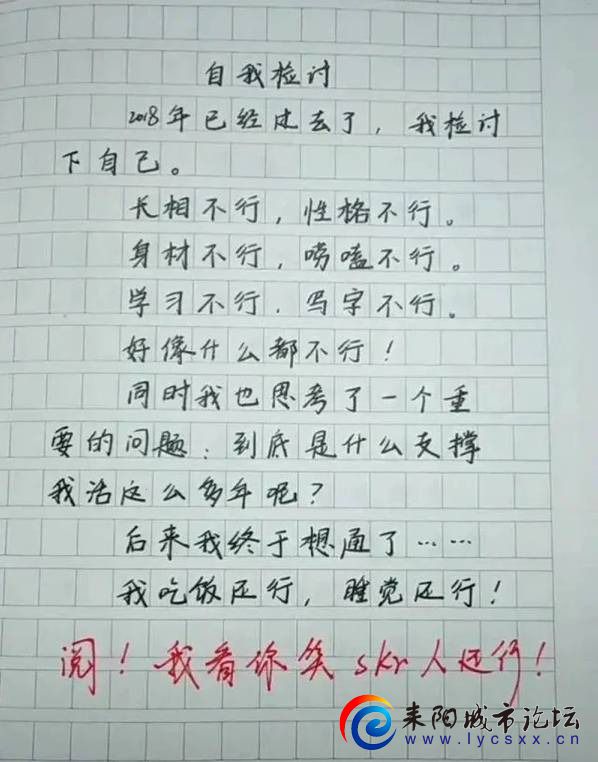 自我检讨
2018年已经过去了，我检讨
下自己。
长相不行，性格不行。
身材不行，唠嗑不行。
学习不行．写字不行。
好像什么都不行！
同时我也思考了一个重
要的问题：到底是什么支撑
我活这么多年呢？
后来我终于想通了……
我吃饭还行，睡觉还行！
阅！我看你笑skr人还行！
耒阳城市论坛
www.lycsxx.cn